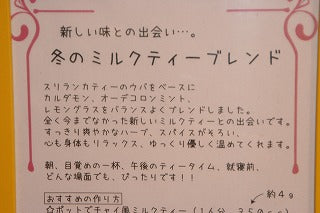 新しい味との出会い…。
冬のミルクティーブレンド
スリランカティーのウバをベースに
カルダモン、オーデコロンミント、
レモングラスをバランスよくブレンドしました。
全く今までなかった新しいミルクティーとの出会いです。
すっきり爽やかなハーブ、スパイスがそろい、
心も身体もリラックス、ゆっくり優しく温めてくれます。
朝、目覚めの一杯、午後のティータイム、就寝前、
どんな場面でも、ぴったりです！！
約4g
おすすめの作り方
☆ポットでチャイ風ミルクティー